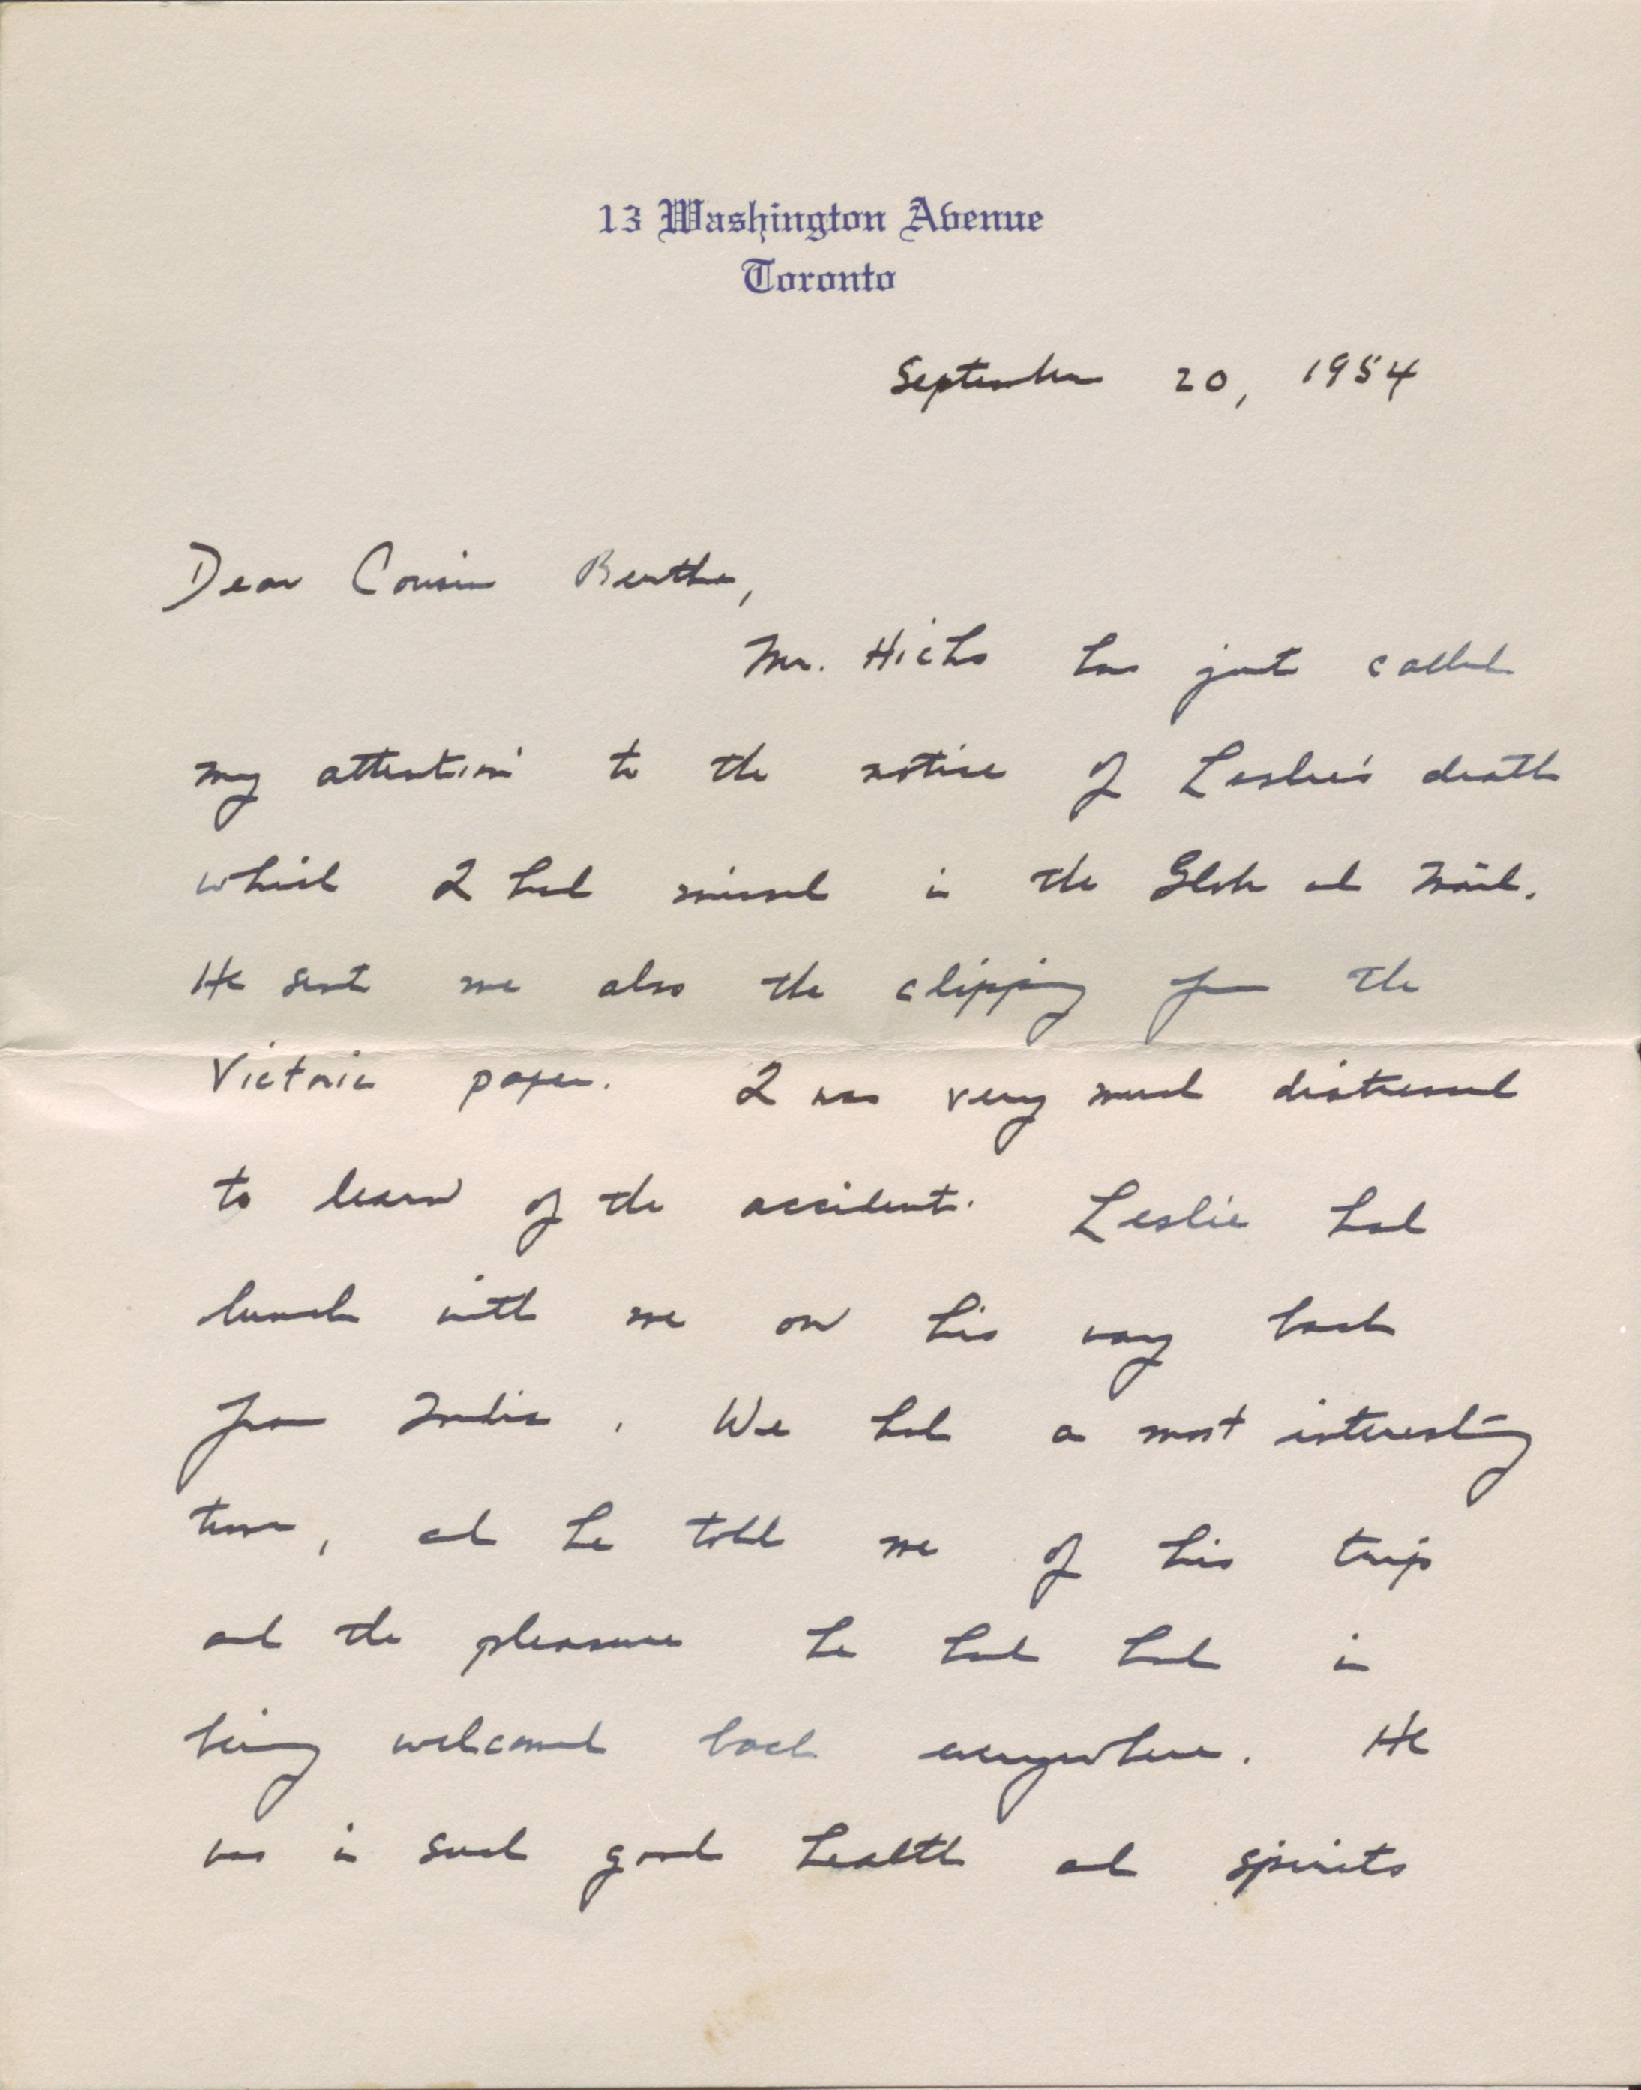 13 Washington Avenue
Toronto
September 20, 1954
Dear Cousin Bertha,
Mr. Hicks has just called
my attention to the notice of Leslie's death
which I had missed in the Globe and Mail.
He sent me also the clipping from the
Victoria paper. I was very much distressed
to learn of the accident. Leslie had
lunch with me on his way back
from India. We had a most interesting
time, and he told me of his trip
and the pleasure he had had in
being welcomed back everywhere. He
was in such good health and spirits